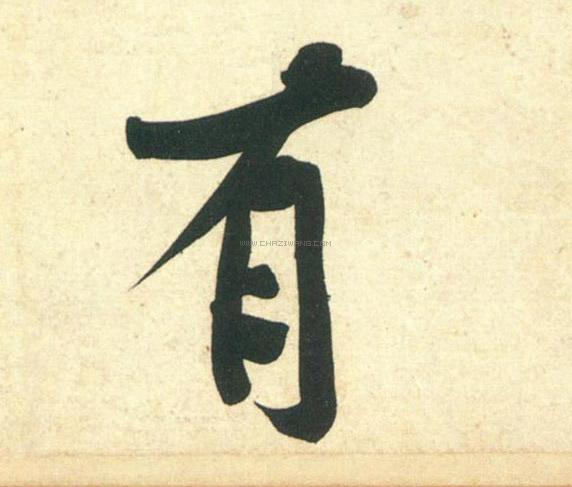 有
WWW.CHAZIWANG.COM